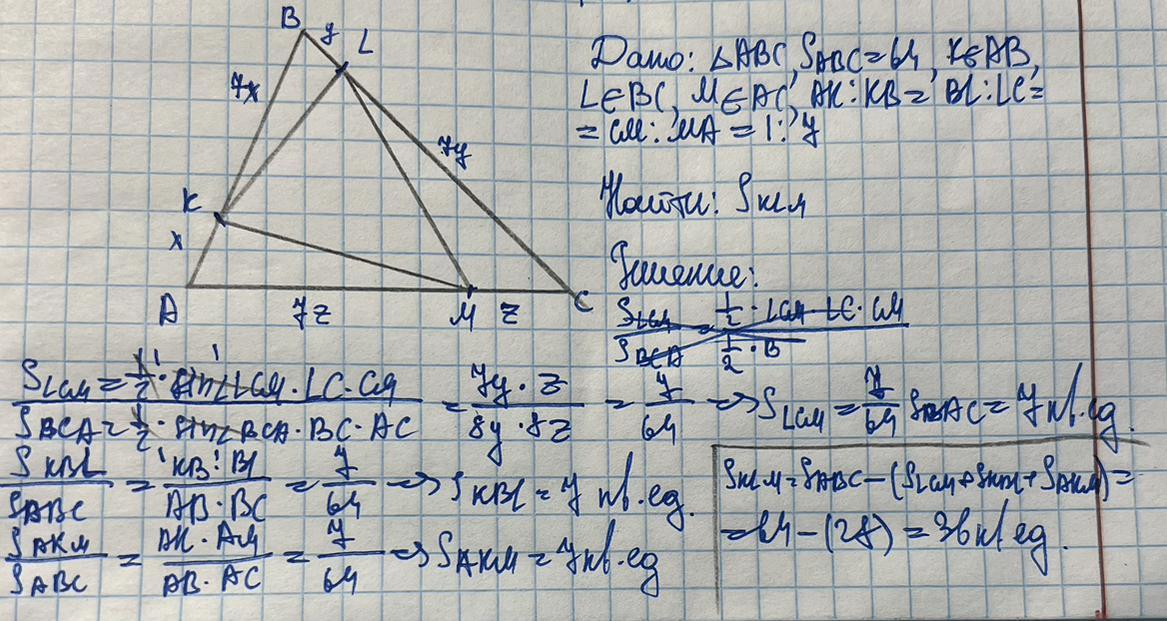 B
y
L
7x
7y
K
x
A
7z
M
z
C
Дано: △ABC, S ABC = 64, K∈AB,
L∈BC, M∈AC, AK:KB = BL:LC =
= CM:MA = 1:7
Найти: S KLM
Решение:
S LCM / S BCA = 1/2 · LCM LC · CM / 1/2 · B
S LCM = 1/2 · sin∠LCM · LC · CM / S BCA = 1/2 · sin∠BCA · BC · AC = 7y · z / 8y · 8z = 7/64 => S LCM = 7/64 S BAC = 7 кв. ед.
S KBL / S ABC = KB · BL / AB · BC = 7/64 => S KBL = 7 кв. ед.
S AKM / S ABC = AK · AM / AB · AC = 7/64 => S AKM = 7 кв. ед
S KLM = S ABC − (S LCM + S KBL + S AKM) =
= 64 − (28) = 36 кв ед.